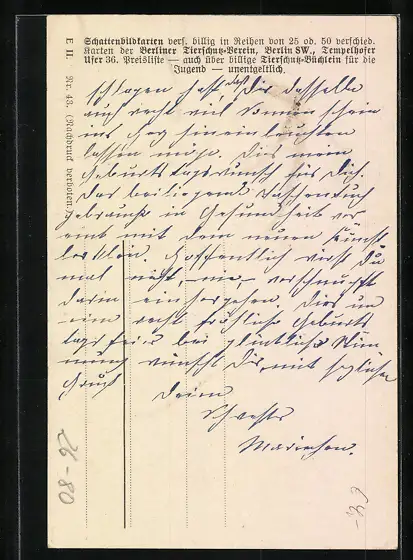 Schattenbildkarten vers. billig in Reihen von 25 od. 50 verschied.
Karten der Berliner Tierschutz-Verein, Berlin SW., Tempelhofer
Ufer 36. Preisliste — auch über billige Tierschutz-Büchlein für die
Jugend — unentgeltlich.
E II. Nr. 43. (Nachdruck verboten.)
schlagen hast, daß Dir dasselbe
auch recht viel Sonnenschein
ins Herz hineinleuchten
lassen möge. Dies mein
Geburtstagswunsch für Dich.
Das beiliegende Taschentuch
gebrauche in Gesundheit ver-
eint mit dem neuen
Hoffentlich wirst Du
mal nicht, – nie, – verschnupft
darin einhergehen. Dies um
eine recht fröhliche Geburts-
tagsfeier bei glücklicher Stim-
mung wünscht Dir, mit herzlichem
Gruß
Deine
Schwester
Mariechen.
26-80